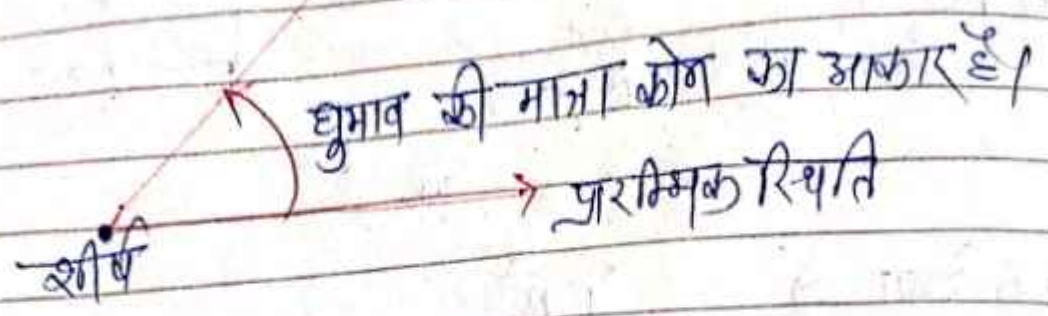 घुमाव की मात्रा कोण का आकार है।
प्रारम्भिक स्थिति
शीर्ष